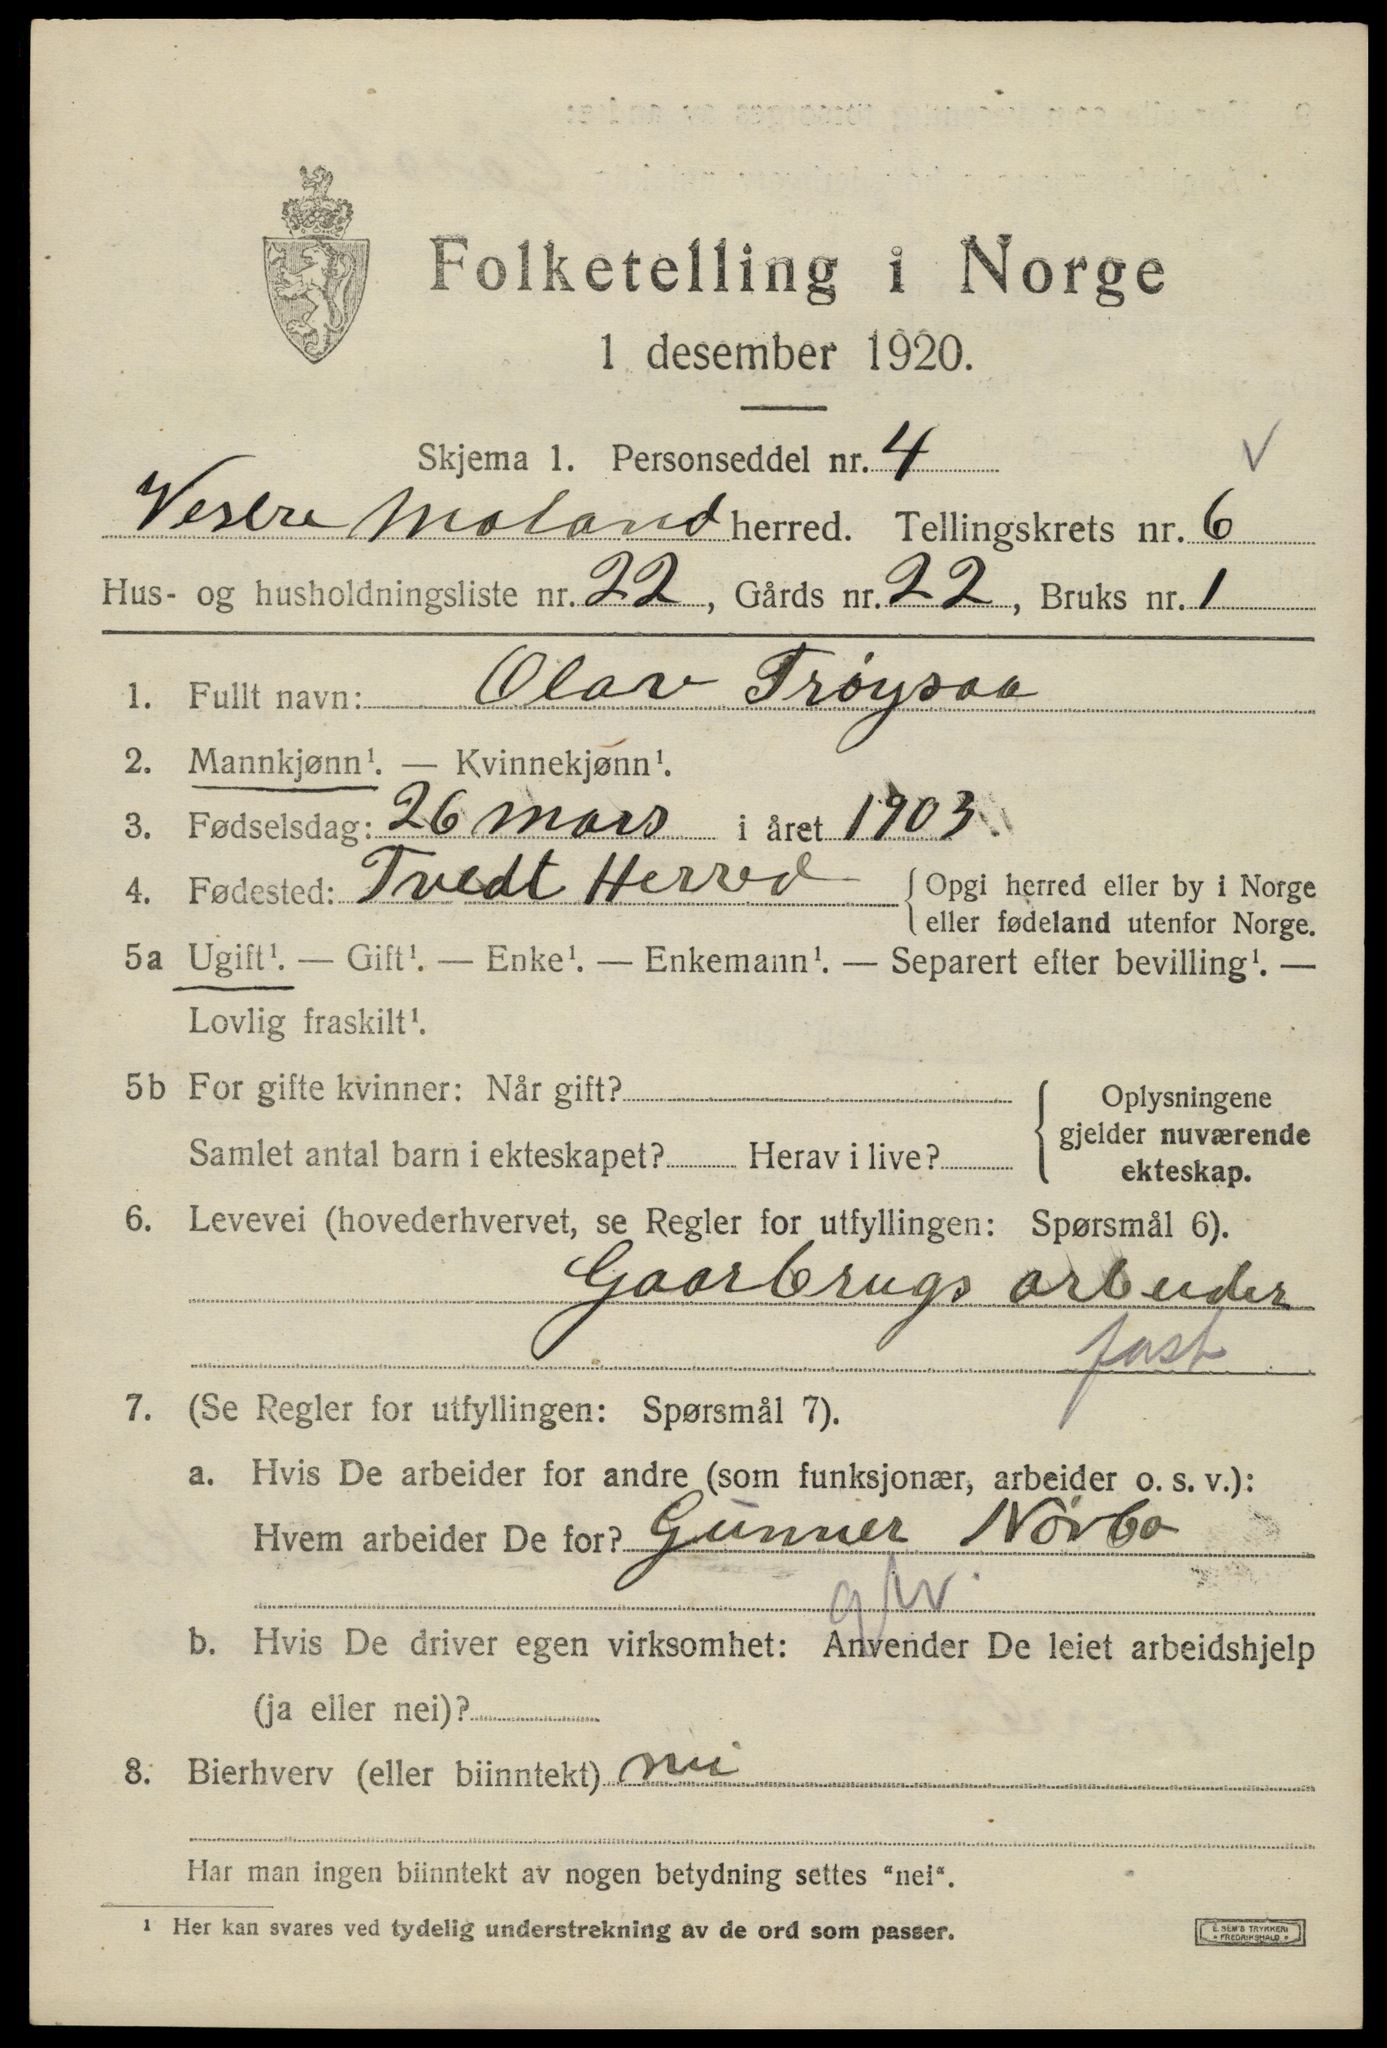 Folketelling i Norge
1 desember 1920.
Skjema 1. Personseddel nr. 4
Vestre Moland herred. Tellingskrets nr. 6
Hus- og husholdningsliste nr. 22, Gårds nr. 22, Bruks nr. 1
1. Fullt navn: Olav Trøysaa
2. Mannkjønn¹. — Kvinnekjønn¹.
3. Fødselsdag: 26 mars i året 1903
4. Fødested: Tvedt Herred { Opgi herred eller by i Norge
eller fødeland utenfor Norge.
5a Ugift¹. — Gift¹. — Enke¹. — Enkemann¹. — Separert efter bevilling¹. —
Lovlig fraskilt¹.
5b For gifte kvinner: Når gift? { Oplysningene
gjelder nuværende
Samlet antal barn i ekteskapet? Herav i live?
ekteskap.
6. Levevei (hovederhvervet, se Regler for utfyllingen: Spørsmål 6).
Gaarbrugs arbeider
fast
7. (Se Regler for utfyllingen: Spørsmål 7).
a. Hvis De arbeider for andre (som funksjonær, arbeider o. s. v.):
Hvem arbeider De for? Gunner Nørbo
b. Hvis De driver egen virksomhet: Anvender De leiet arbeidshjelp
(ja eller nei)?
8. Bierhverv (eller biinntekt) nei
Har man ingen biinntekt av nogen betydning settes "nei".
¹ Her kan svares ved tydelig understrekning av de ord som passer.
E. SEM'S TRYKKERI
FREDRIKSHALD